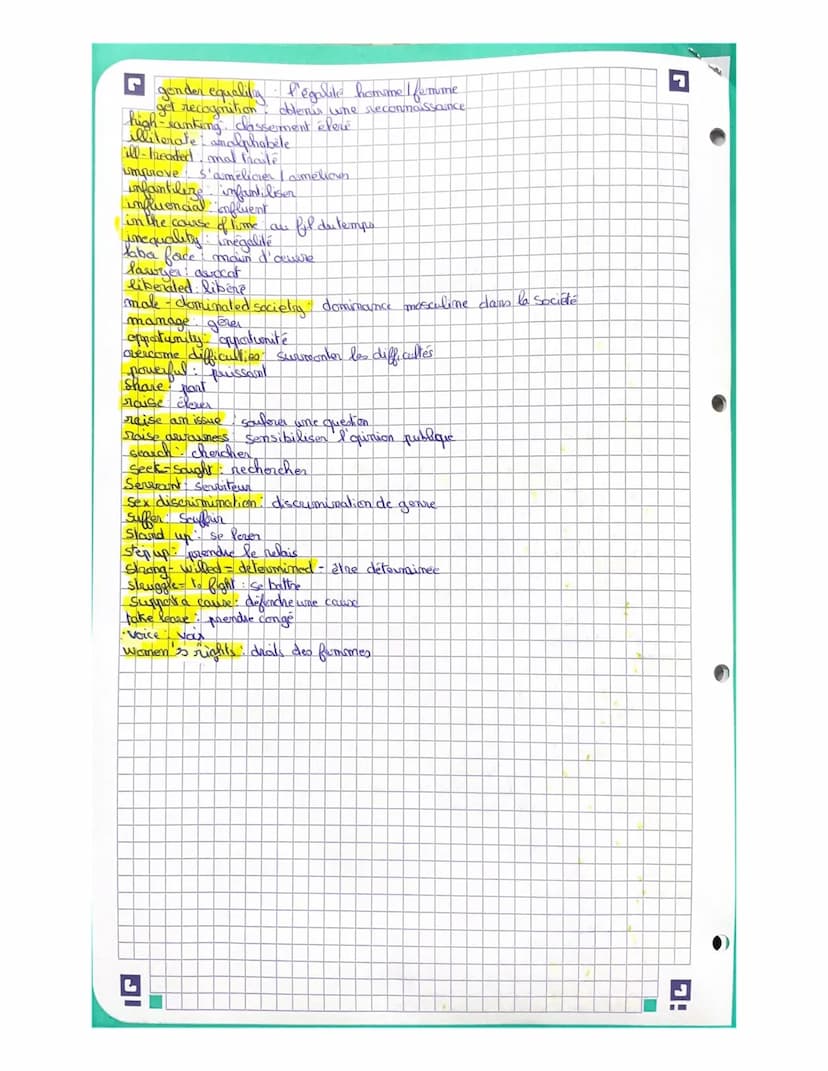 gender equality : l'égalité homme/femme
get recognition : obtenir une reconnaissance
high-ranking : classement élevé
illiterate : analphabète
ill-treated : mal traité
improve : s'améliorer / améliorer
infantilize : infantiliser
influencial : influent
in the course of time : au fil du temps
inequality : inégalité
labor force : main d'œuvre
lawyer : avocat
liberated : libéré
male-dominated society : dominance masculine dans la société
manage : gérer
opportunity : opportunité
overcome difficulties : surmonter les difficultés
powerful : puissant
share : part
raise : élever
raise an issue : soulever une question
raise awareness : sensibiliser l'opinion publique
search : chercher
seek-sought : rechercher
servant : serviteur
sex discrimination : discrimination de genre
suffer : souffrir
stand up : se lever
step up : prendre le relais
strong-willed = determined - être déterminée
struggle = to fight : se battre
support a cause : défendre une cause
take leave : prendre congé
voice : voix
women's rights : droits des femmes